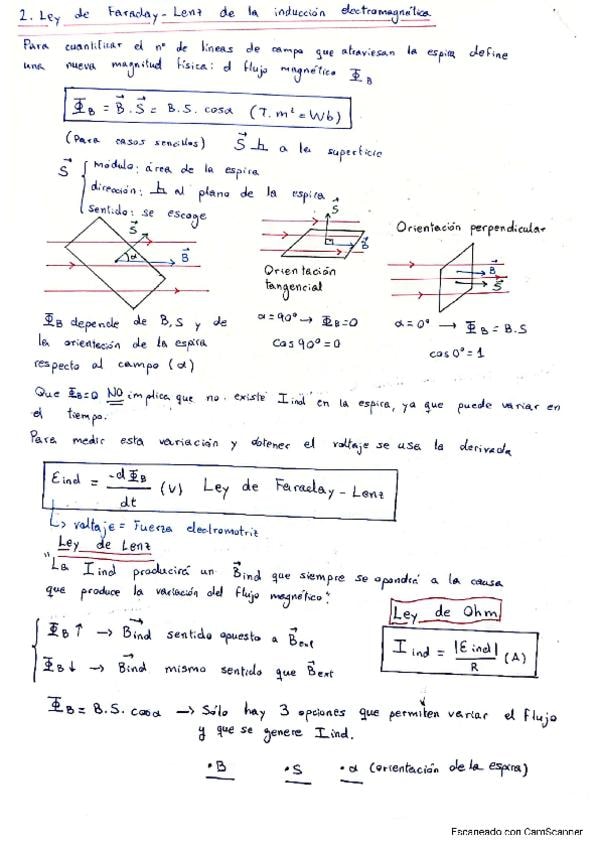 2. Ley de Faraday-Lenz de la inducción electromagnética
Para cuantificar el nº de líneas de campo que atraviesan la espira define
una nueva magnitud física: el flujo magnético Φ_B
Φ_B = B⃗ . S⃗ = B.S. cosα (T.m² = Wb)
(Para casos sencillos) S⃗ ⊥ a la superficie
S⃗ { módulo: área de la espira
dirección: ⊥ al plano de la espira
sentido: se escoge
S⃗
α
B⃗
S⃗
B⃗
Orientación perpendicular
B⃗
S⃗
Orientación
tangencial
Φ_B depende de B, S y de
la orientación de la espira
respecto al campo (α)
α = 90° → Φ_B = 0
cos 90° = 0
α = 0° → Φ_B = B.S
cos 0° = 1
Que Φ_B=0 NO implica que no existe I ind en la espira, ya que puede variar en
el tiempo.
Para medir esta variación y obtener el voltaje se usa la derivada
Ɛind = -dΦ_B/dt (V) Ley de Faraday-Lenz
↳ voltaje = Fuerza electromotriz
Ley de Lenz
"La I ind producirá un B⃗ind que siempre se opondrá a la causa
que produce la variación del flujo magnético".
Ley de Ohm
Φ_B ↑ → B⃗ind sentido opuesto a B⃗ext
Φ_B ↓ → B⃗ind mismo sentido que B⃗ext
I ind = |Ɛind|/R (A)
Φ_B = B.S. cosα → Sólo hay 3 opciones que permiten variar el flujo
y que se genere I ind.
• B • S • α (orientación de la espira)
Escaneado con CamScanner